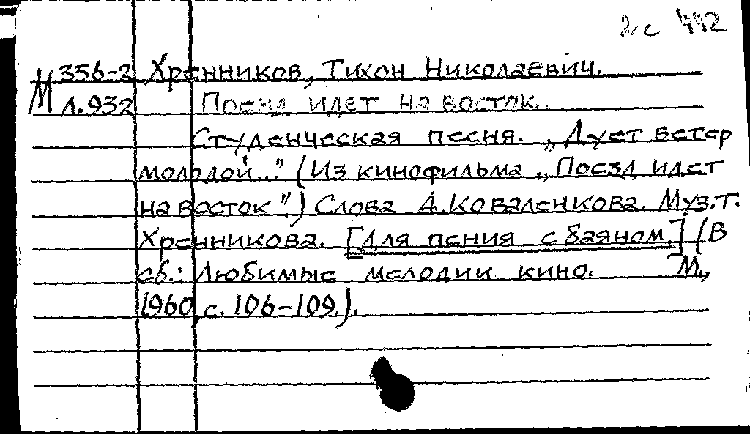 442
М 356-2 Хренников, Тихон Николаевич.
Л.932 Поезд идет на восток.
Студенческая песня. „Дует ветер
молодой..." (Из кинофильма „Поезд идет
на восток".) Слова А.Коваленкова. Муз.Т.
Хренникова. [Для пения с баяном.] (В
сб.: Любимые мелодии кино. М.,
1960, с. 106-109.).